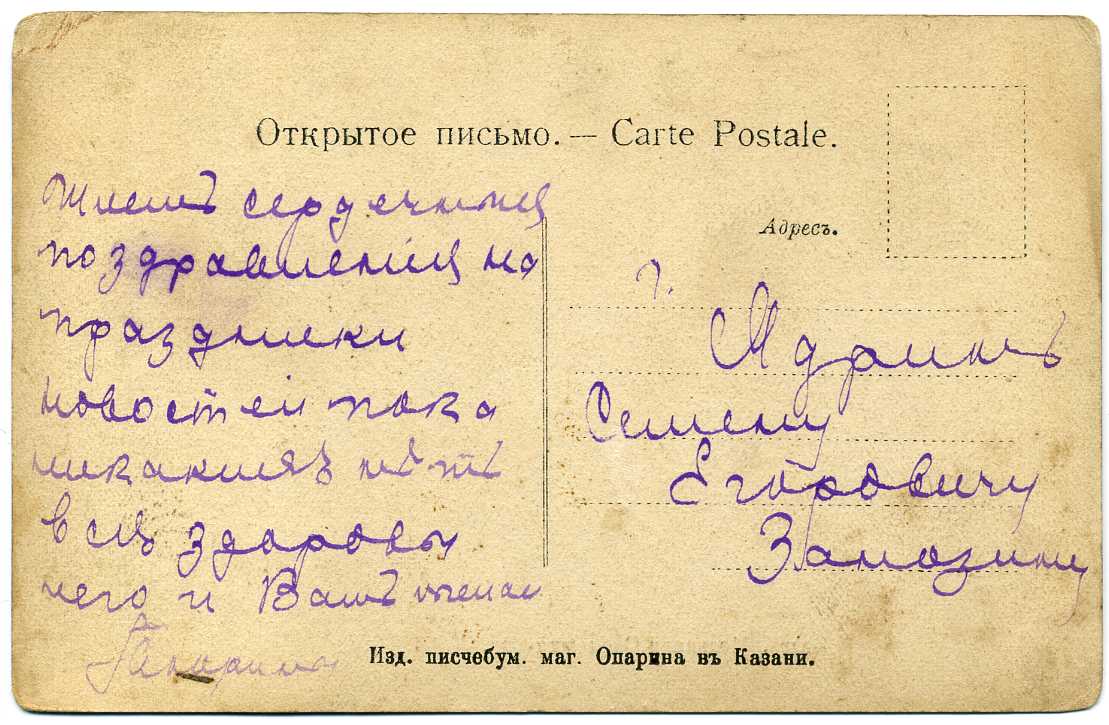 Открытое письмо. — Carte Postale.
Адресъ.
Шлемъ сердечныя
поздравления на
праздники
новостей пока
никакихъ нѣтъ
всѣ здоровы
чего и Вамъ желаю
г.
Ядринъ
Семену
Егоровичу
Замозину
Изд. писчебум. маг. Опарина въ Казани.